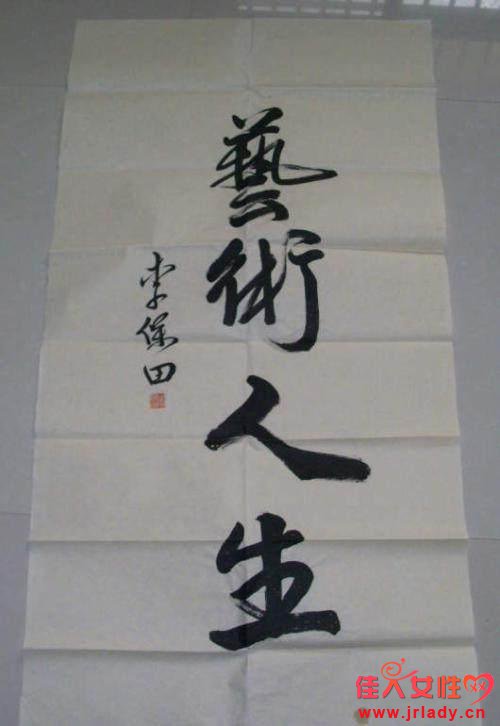 藝術人生
李保田
佳人女性网
www.jrlady.cn